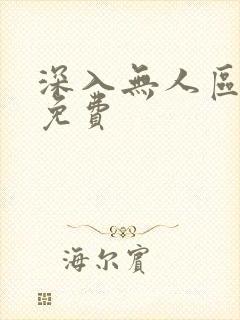 深入無人區
免費
海尔賓